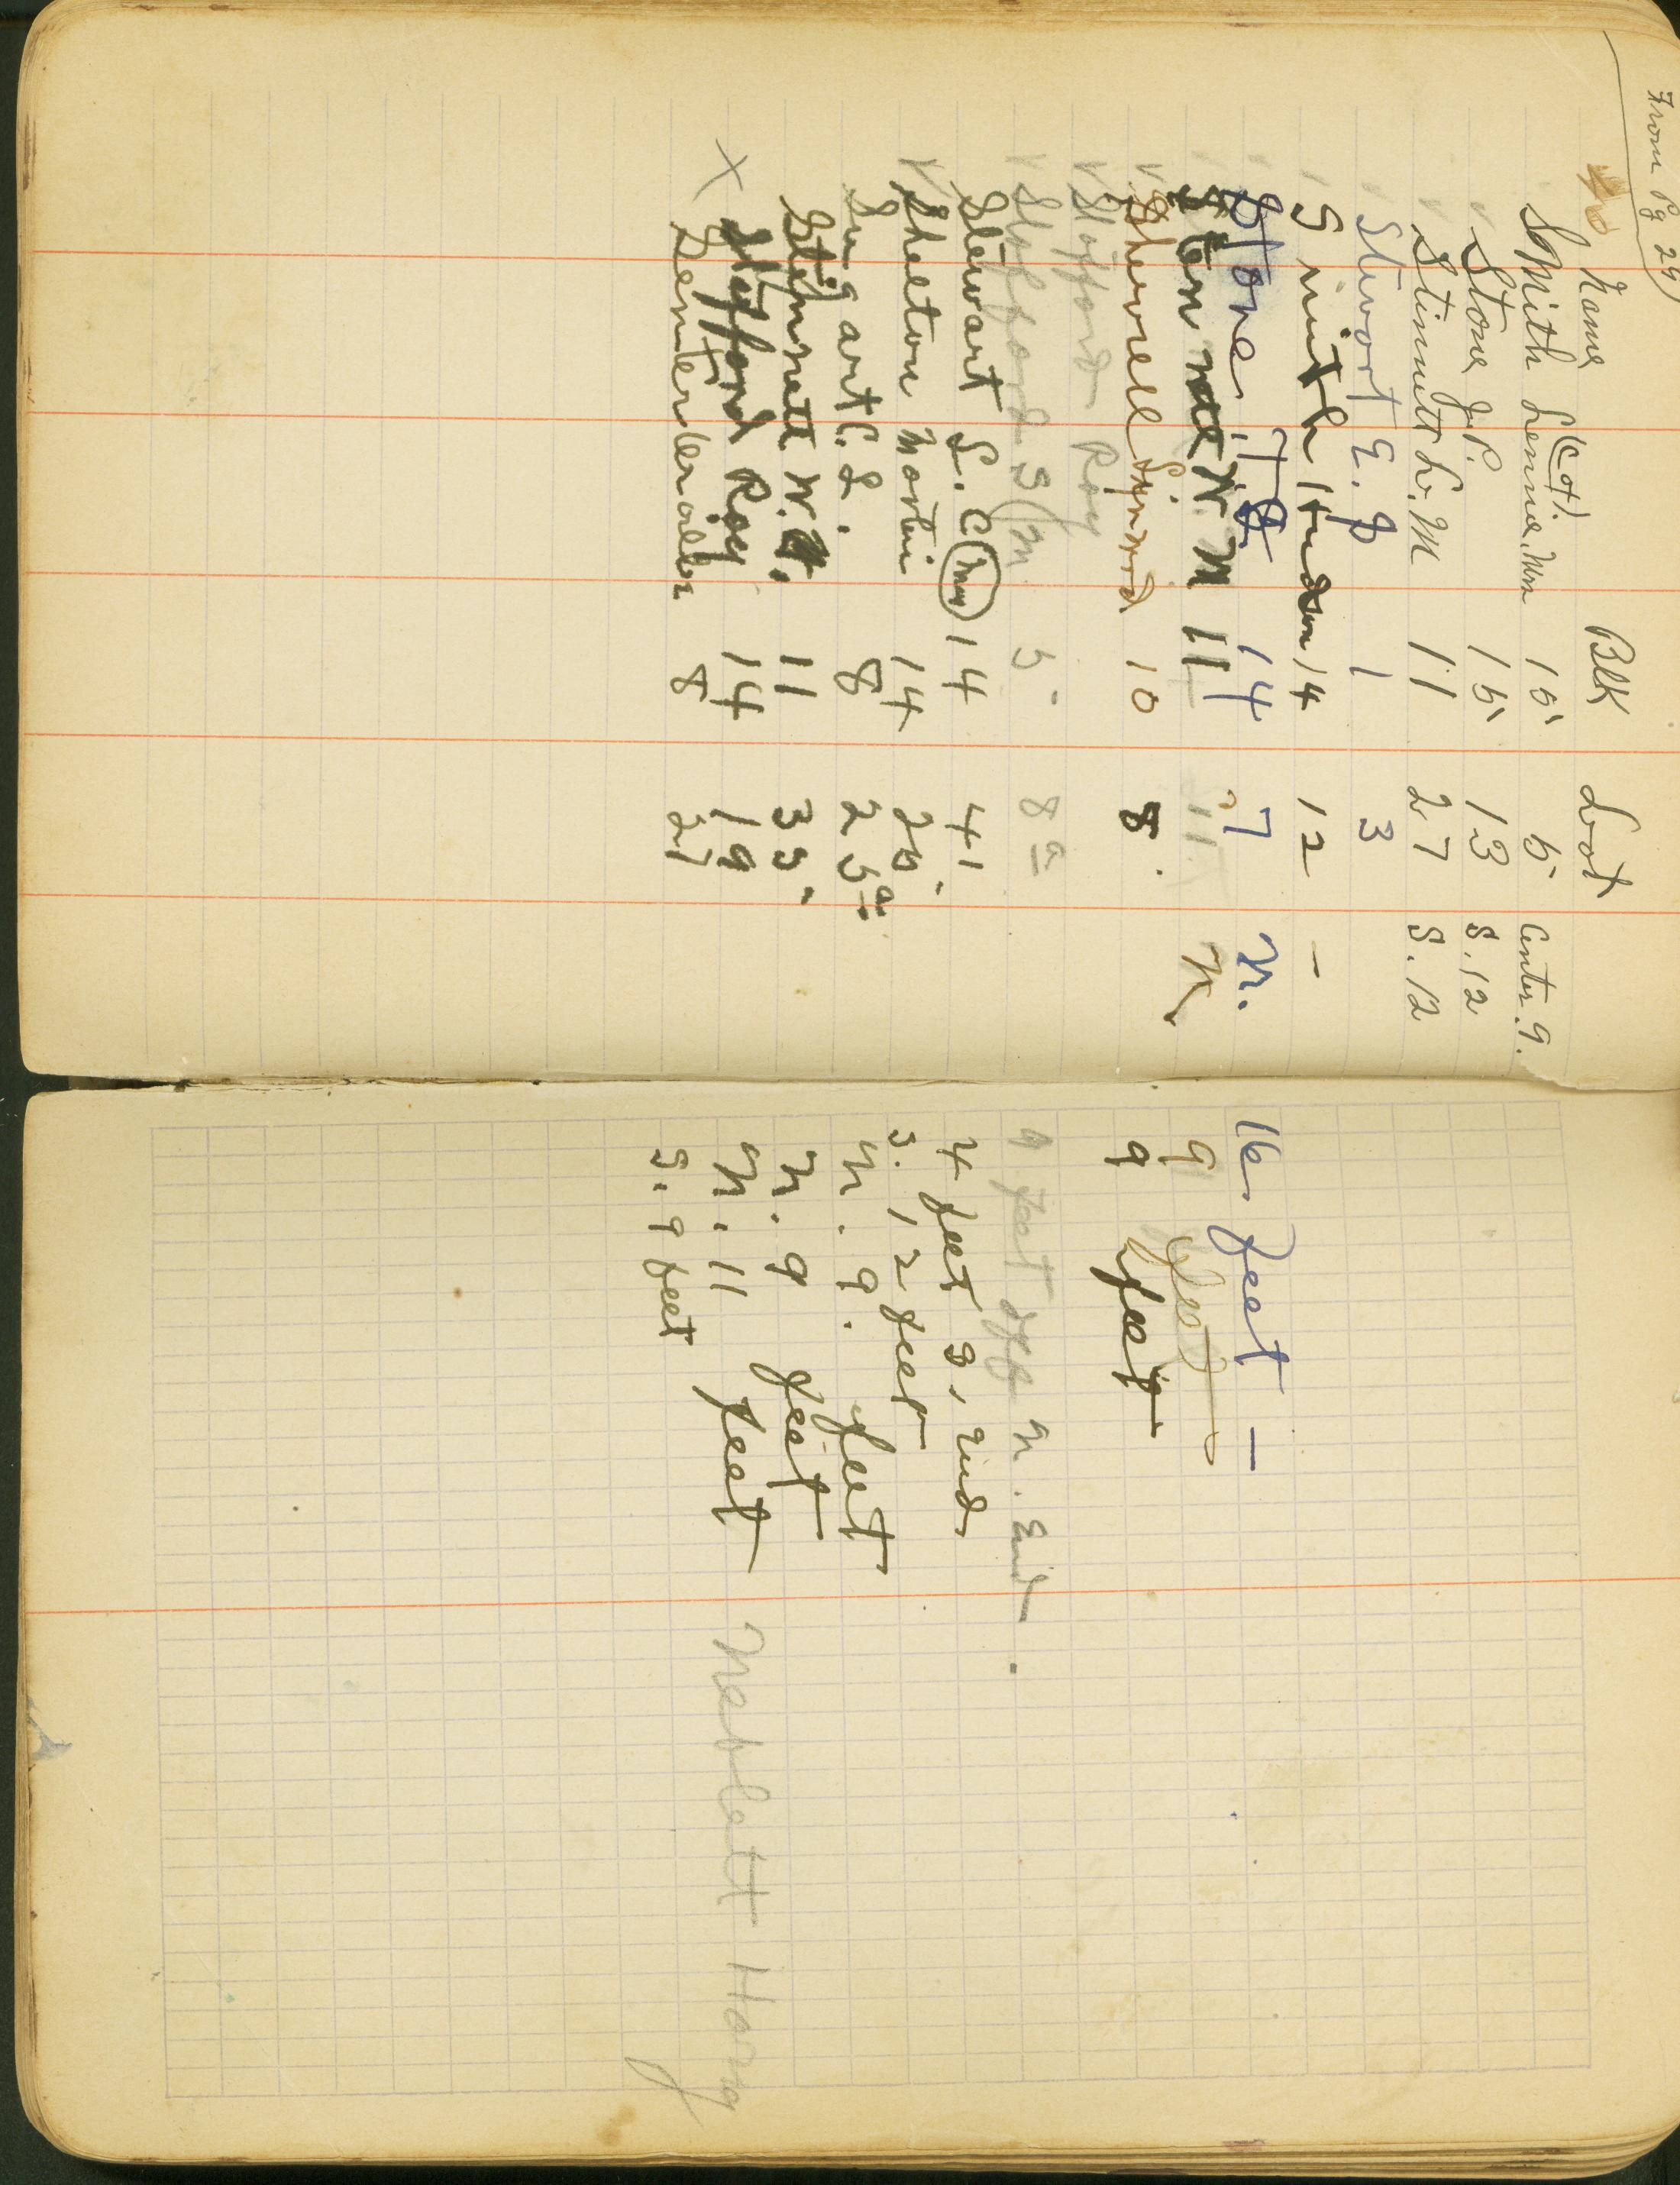 From Pg 29)
40 Name Blk Loot
(Cot).
Smith Lennie. Mrs 15 5 Center. 9.
v Stone J. P. 15 13 S. 12
v Stinnett L. M 11 27 S. 12
v Stuort E. J 1 3
Smith Hudson 14 12 —
Stone. T. J. 14 7 N. 16 feet —
W. M 11 11 N 9 feet
v 10 8. 9 feet
v Stofford Roy
v Stafford S M 5 8 a 9 feet N. End.
Stewart S. C (Mrs) 14 41 4 feet S, End
v Sheeton Martin 14 26. S. 12 feet
art C. L. 8 25 a N. 9. feet
Stinnett W. 11 35. N. 9 feet
X Stafford Roy 14 19 N. 11 feet Neblett Harry
8 27 S. 9 feet